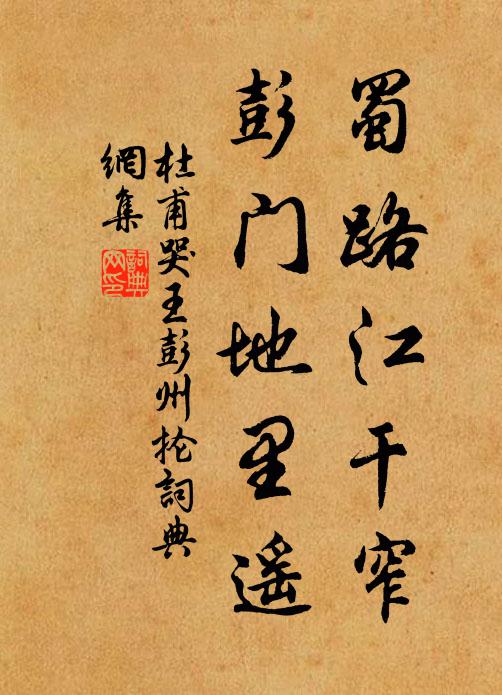 蜀路江干窄
彭门地里遥
杜甫哭王彭州抡詞典
網集
詞典
网印